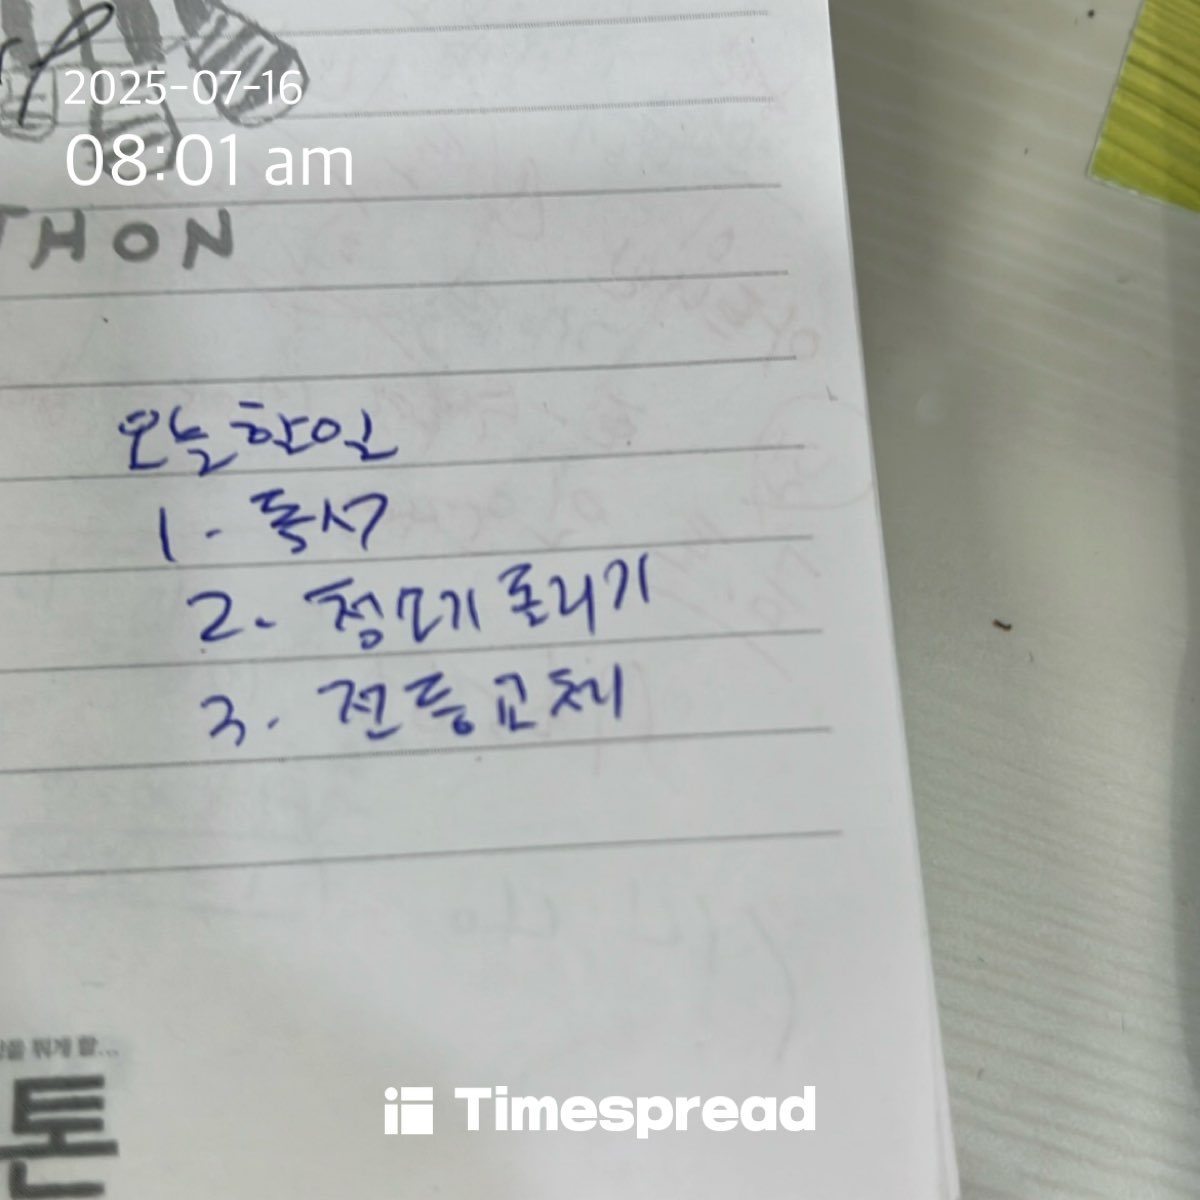 2025-07-16
08:01 am
THON
오늘 할 일
1. 독서
2. 청소기 돌리기
3. 전등 교체
뭐게 할...
톤
Timespread